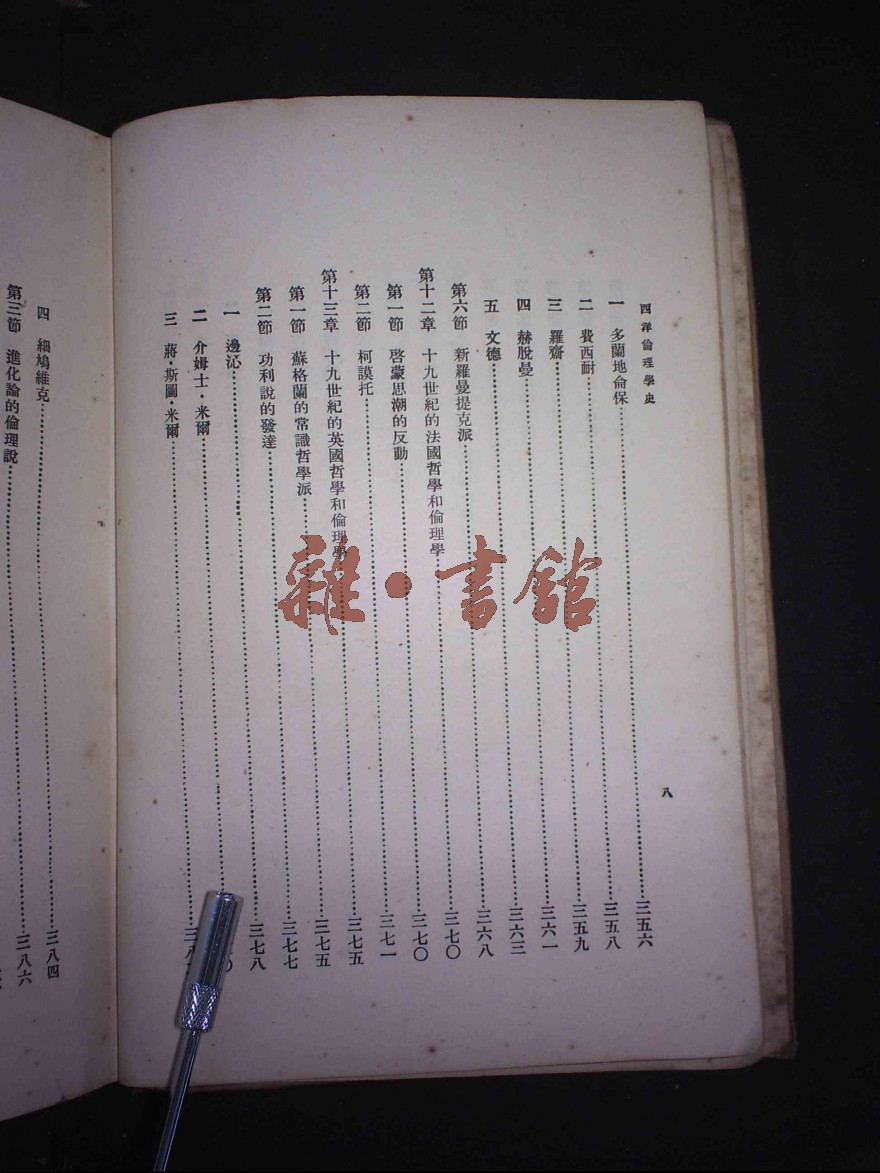 西洋倫理學史 八
一 多蘭地侖保……三五六
二 費西耐……三五八
三 羅齋……三五九
四 赫脫曼……三六一
五 文德……三六三
第六節 新羅曼提克派……三六八
第十二章 十九世紀的法國哲學和倫理學……三七〇
第一節 啓蒙思潮的反動……三七〇
第二節 柯謨托……三七一
第十三章 十九世紀的英國哲學和倫理學……三七五
第一節 蘇格蘭的常識哲學派……三七五
第二節 功利說的發達……三七七
一 邊沁……三七八
二 介姆士·米爾……〇
三 蔣·斯圖·米爾……三八
四 細鳩維克……三八四
第三節 進化論的倫理說……三八六
雜·書館